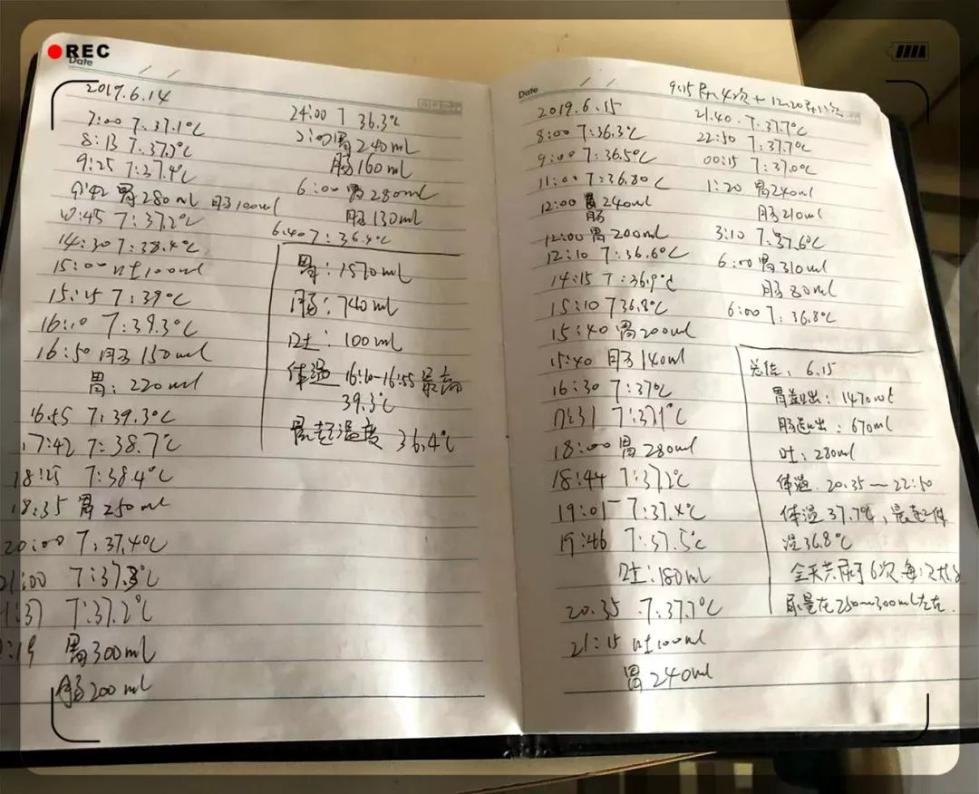 REC
Date
2019.6.14
7:00 T:37.1℃
8:13 T:37.2℃
9:25 T:37.4℃
9:42 胃280ml 肠100ml
10:45 T:37.2℃
14:30 T:38.4℃
15:00 吐100ml
15:25 T:39℃
16:10 T:39.3℃
16:50 肠150ml
胃:220ml
16:55 T:39.3℃
17:42 T:38.7℃
18:25 T:38.4℃
18:35 胃250ml
20:00 T:37.4℃
21:00 T:37.3℃
T:37.2℃
胃300ml
肠200ml
24:00 T 36.3℃
2:00胃240ml
肠160ml
6:00胃280ml
肠130ml
6:40 T:36.4℃
胃:1570ml
肠:740ml
吐:100ml
体温 16:10-16:55最高
39.3℃
最低温度 36.4℃
Date
9:15尿4次+12:20尿1次
2019.6.15
8:00 T:36.3℃
9:00 T:36.5℃
11:00 T:36.8℃
12:00 胃240ml
肠
12:00 胃200ml
12:10 T:36.6℃
14:15 T:36.9℃
15:10 T36.8℃
15:40 胃200ml
15:40 肠140ml
16:30 T:37℃
17:31 T:37.1℃
18:00 胃280ml
18:44 T:37.2℃
19:01 T:37.4℃
19:46 T:37.5℃
吐:180ml
20.35 T:37.7℃
21:15 吐100ml
胃240ml
21.40 T:37.7℃
22:50 T:37.7℃
00:15 T:37.0℃
1:20 胃240ml
肠210ml
3:10 T:37.6℃
6:00胃310ml
肠80ml
6:00 T:36.8℃
总结:6.15
胃送出:1470ml
肠送出:670ml
吐:280ml
体温 20.35—22:50
体温37.7℃,最低体
温36.8℃
全天共尿了6次每次大约
尿量在250~300ml左右.